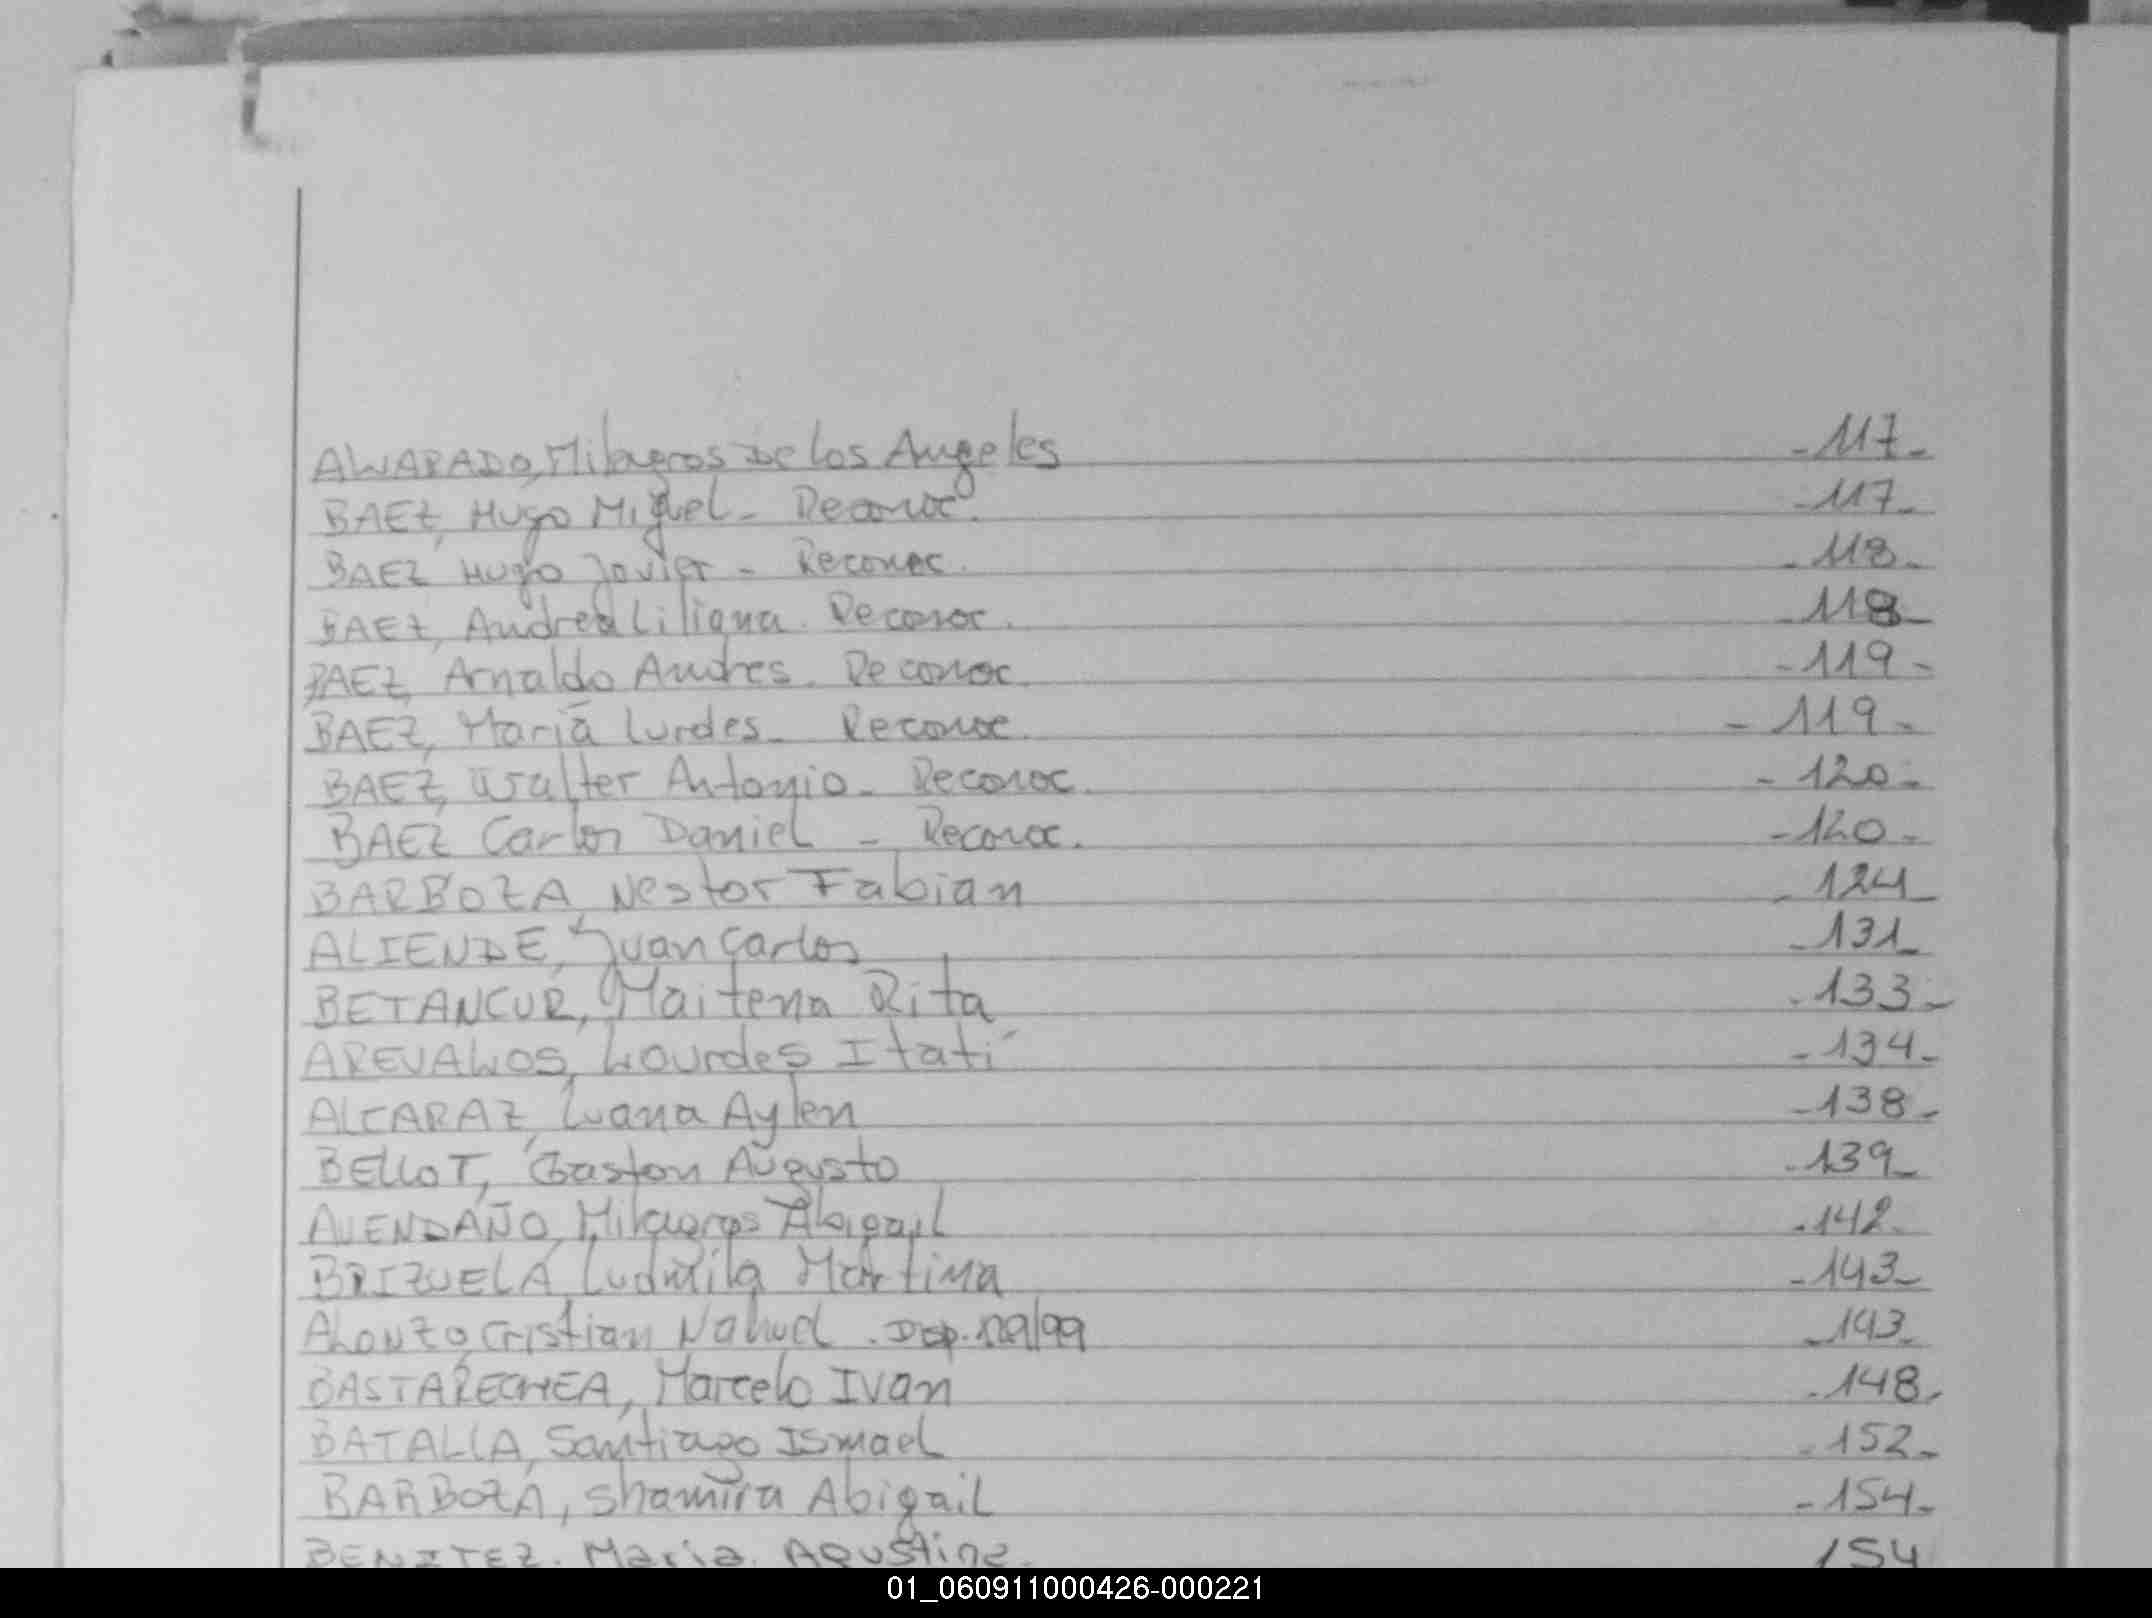 ALVARADO, Milagros De los Angeles -117-
BAEZ, Hugo Miguel - Reconoc. -117-
BAEZ Hugo Javier - Reconoc. -118-
BAEZ, Andrea Liliana. Reconoc. -118-
BAEZ, Arnaldo Andres. Reconoc. -119-
BAEZ, Maria Lurdes - Reconoc. -119-
BAEZ, Walter Antonio - Reconoc. -120-
BAEZ Carlos Daniel - Reconoc. -120-
BARBOZA, Nestor Fabian -124-
ALIENDE, Juan Carlos -131-
BETANCUR, Maitena Rita -133-
AREVALOS, Lourdes Itatí -134-
ALCARAZ, Luana Aylen -138-
BELLOT, Gaston Augusto -139-
AVENDAÑO, Milagros Abigail -142-
BRIZUELA, Ludmila Martina -143-
ALONZO, Cristian Nahuel . Disp. 129/99 -143-
BASTARECHEA, Marcelo Ivan -148-
BATALLA, Santiago Ismael -152-
BARBOZA, Shamira Abigail -154-
BENITEZ. Maria. Agustina. 154
01_060911000426-000221